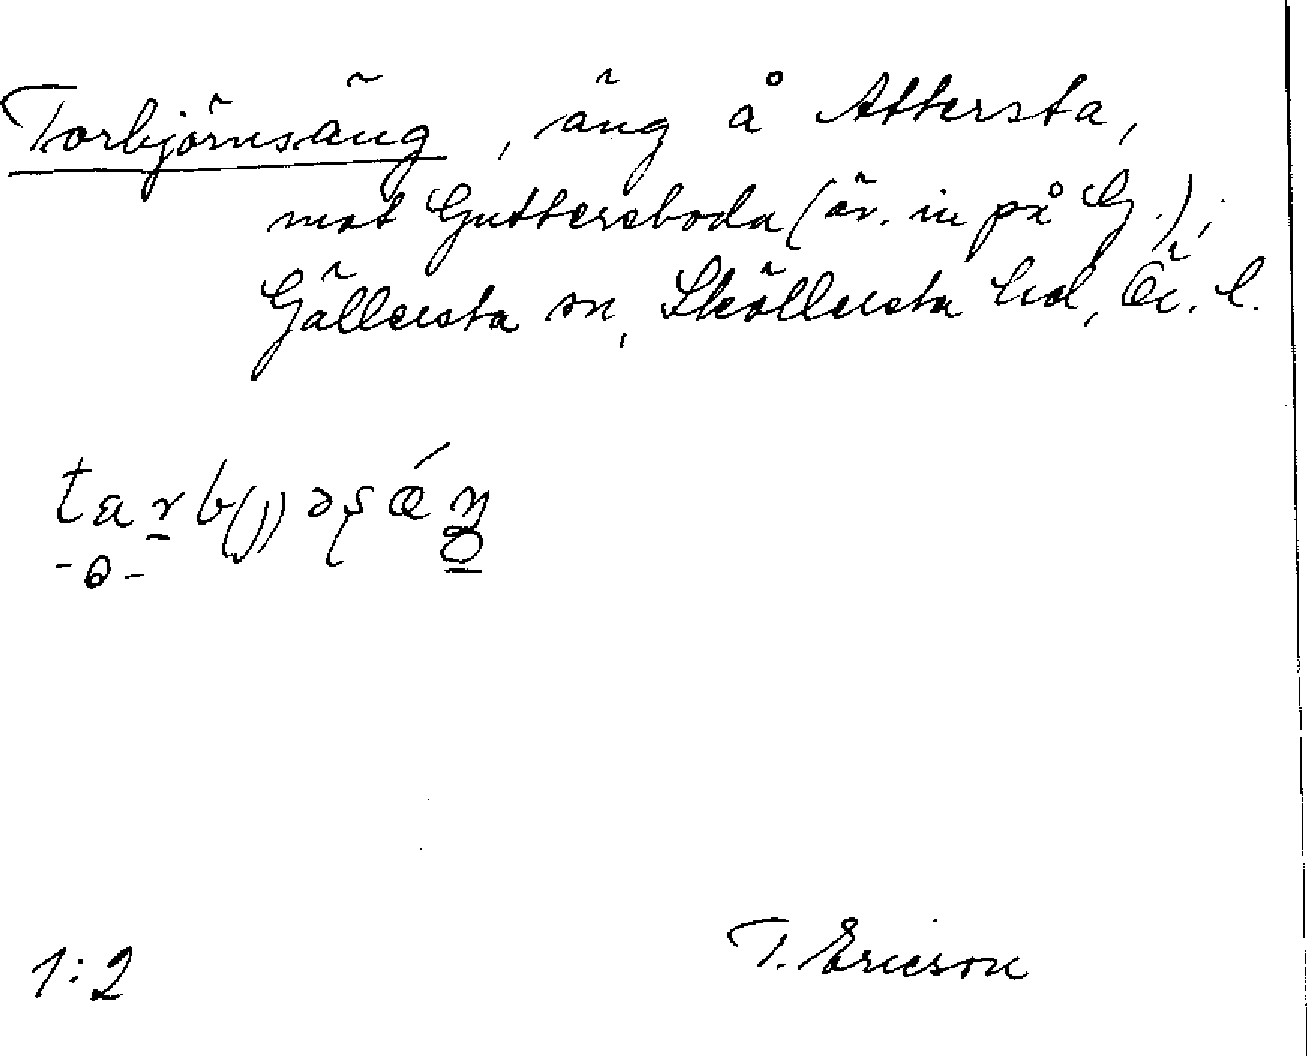 Torbjörnsäng, äng å Attersta,
mot Guttersboda (äv. in på G.);
Gällersta sn, Sköllersta hd, Ör. l.
1:2
T. Ericson